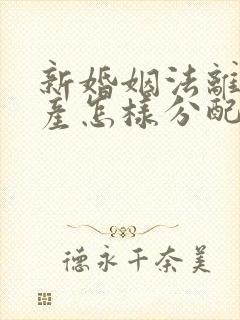 新婚姻法離
產怎樣分配
德永千奈美